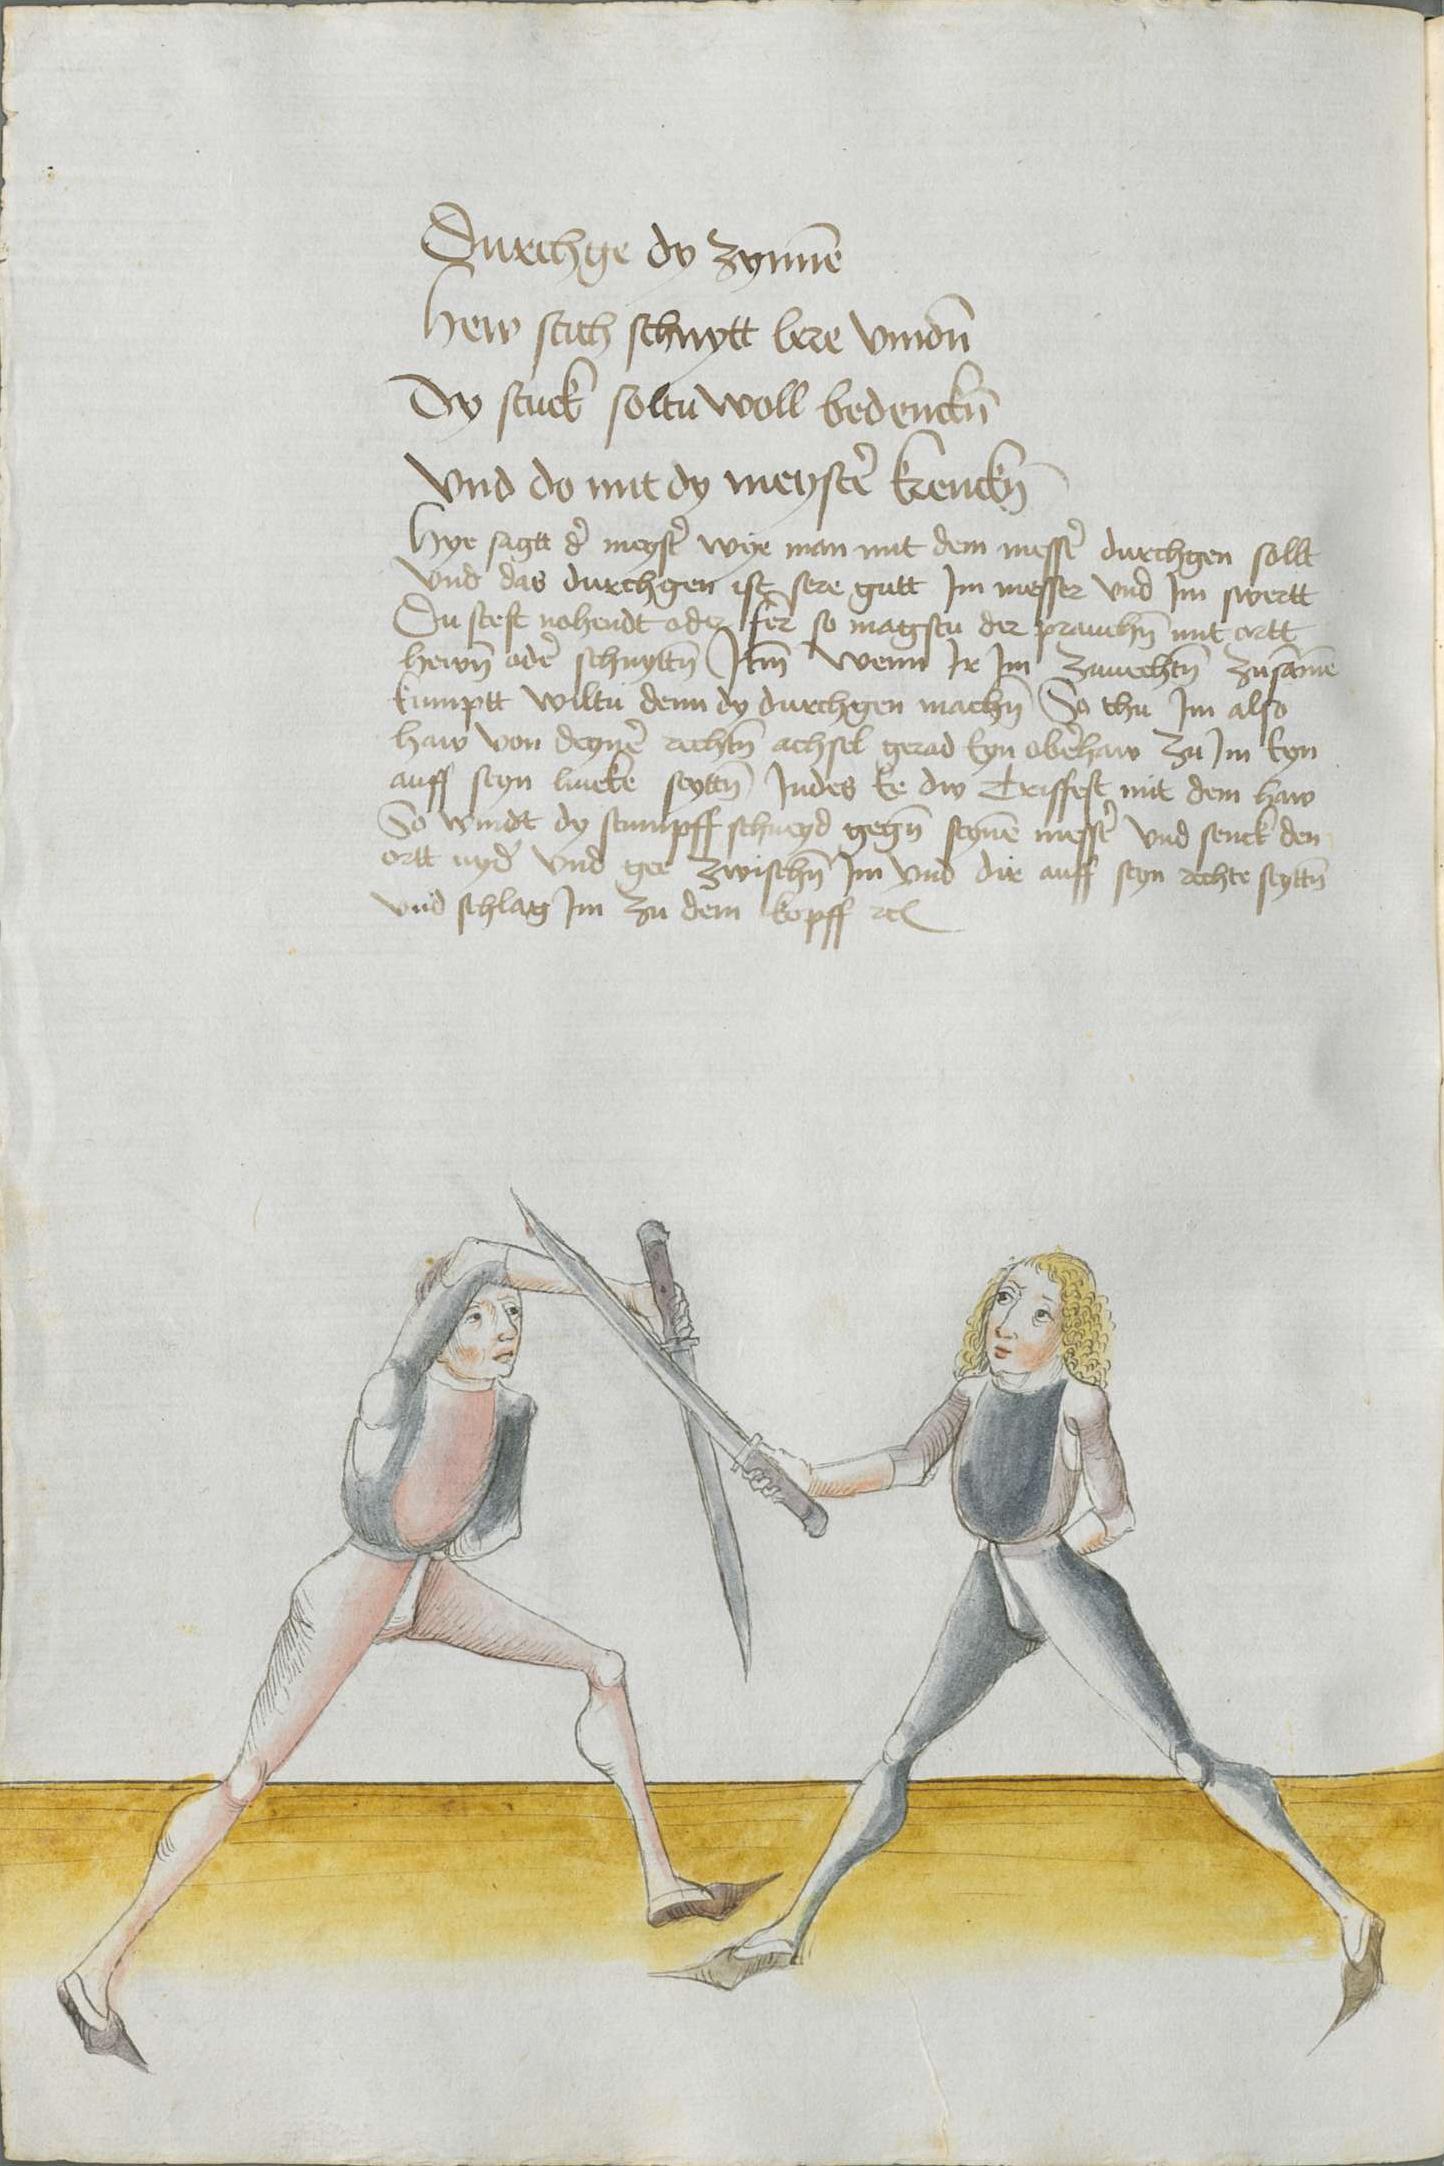 Durchge dy zynne̅
Hew stich schnytt lere vindn̅
Dy stuck soltu woll bedenckn̅
Vnd do mit dy meyster̉ krenckn̅
Hye sagtt d̉ meyst̉ wye man mit dem mess̉ durchgen sollt
Vnd das durchgen ist sere gutt Im messer vnd Im swertt
Du stest nohendt oder fer so magstu der prauchn̅ mit ortt
hewn̅ oder̉ schnyttn̅ Itm̅ Wenn Ir Im zauechtn̅ zusam̅e
kumptt wiltu denn dy durchgen machn̅ So thu Im also
haw von deyner̉ rechtn̅ achsel gerad eyn ober̉haw zu Im eyn
auff seyn lincke seyttn̅ Indes ee dw Triffest mit dem haw
So windt dy stumpff schneyd gegn̅ seyne̅ mess̉ vnd senck den
ortt nyd̉ vnd gee zwischn̅ Im vnd dir auff seyn rechte seyttn̅
vnd schlag Im zu dem kopff rc